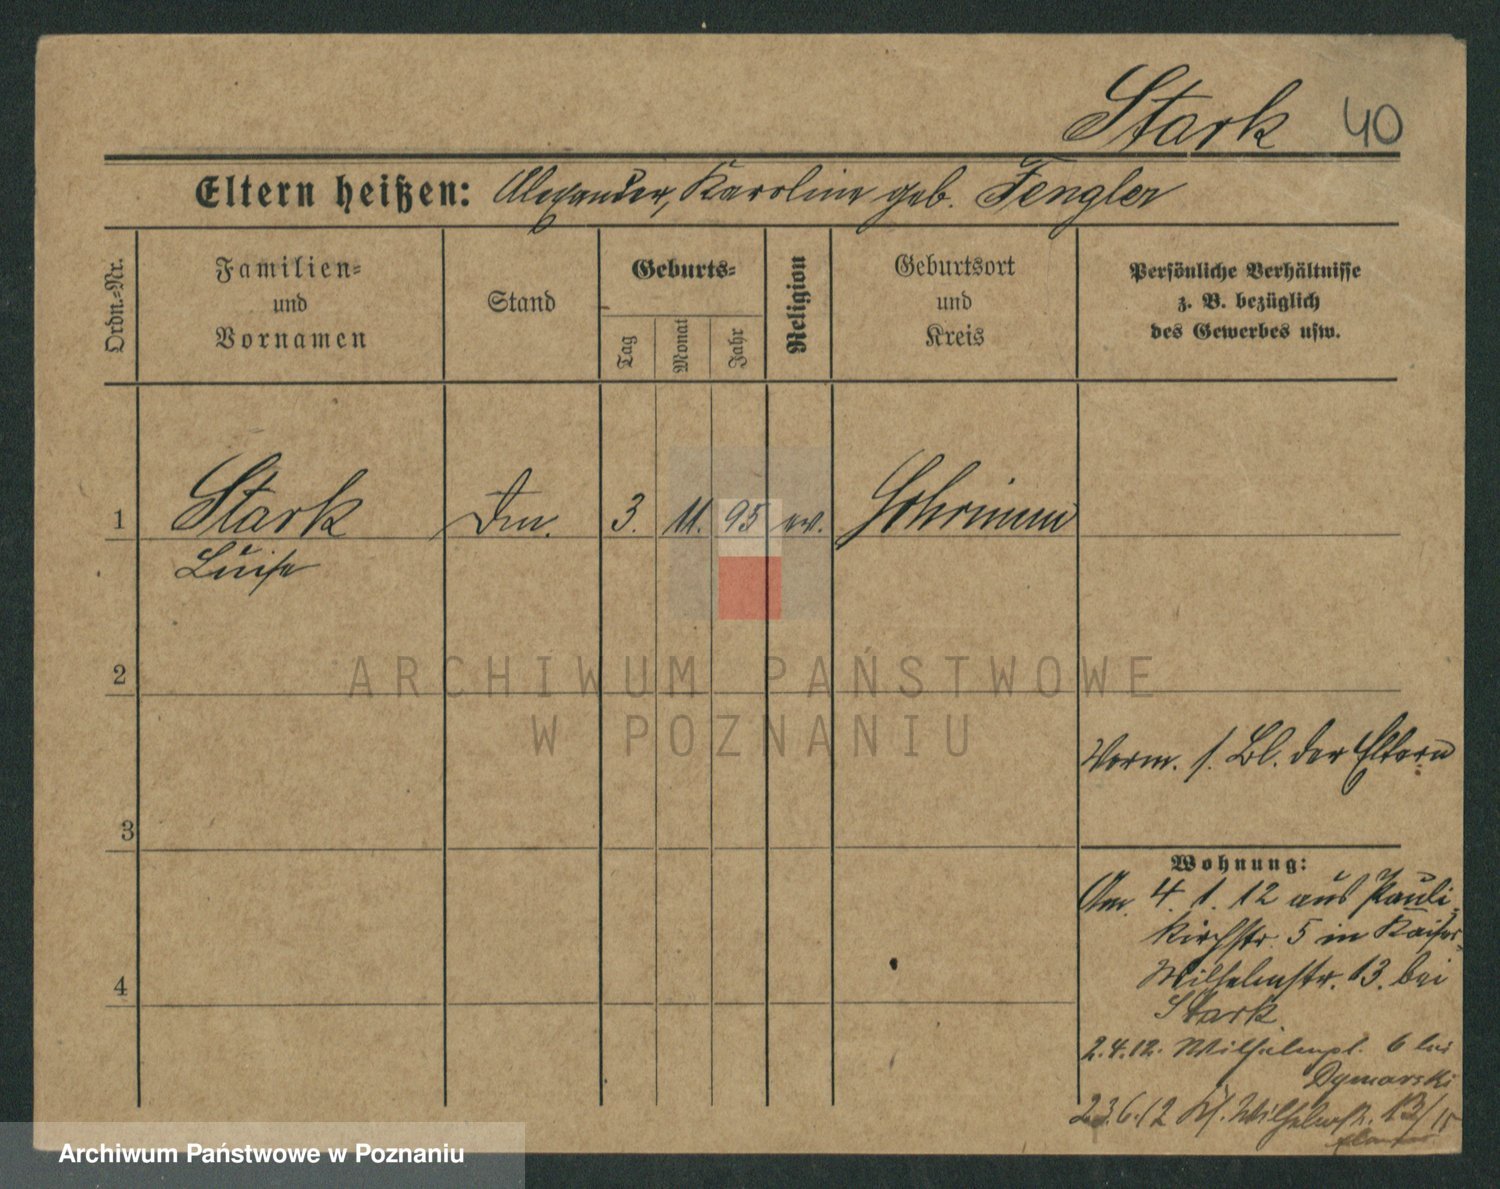 Stark 40
Eltern heißen: Alexander, Karoline geb. Fengler
Ordn.-Nr.
Familien-
und
Vornamen
Stand
Geburts-
Tag
Monat
Jahr
Religion
Geburtsort
und
Kreis
Persönliche Verhältnisse
z. B. bezüglich
des Gewerbes usw.
1 Stark 3. 11. 95 ev.
Luise
2
3
4
Verm. s. Bl. der Eltern
Wohnung:
Am 4. 1. 12 aus Pauli-
kirchstr. 5 in Kaiser-
Wilhelmstr. 13. bei
Stark.
2.4.12. Wilhelmpl. 6 bei
Dymarski
23.6.12 Wilhelmstr. 13/15
ARCHIWUM PAŃSTWOWE
W POZNANIU
Archiwum Państwowe w Poznaniu